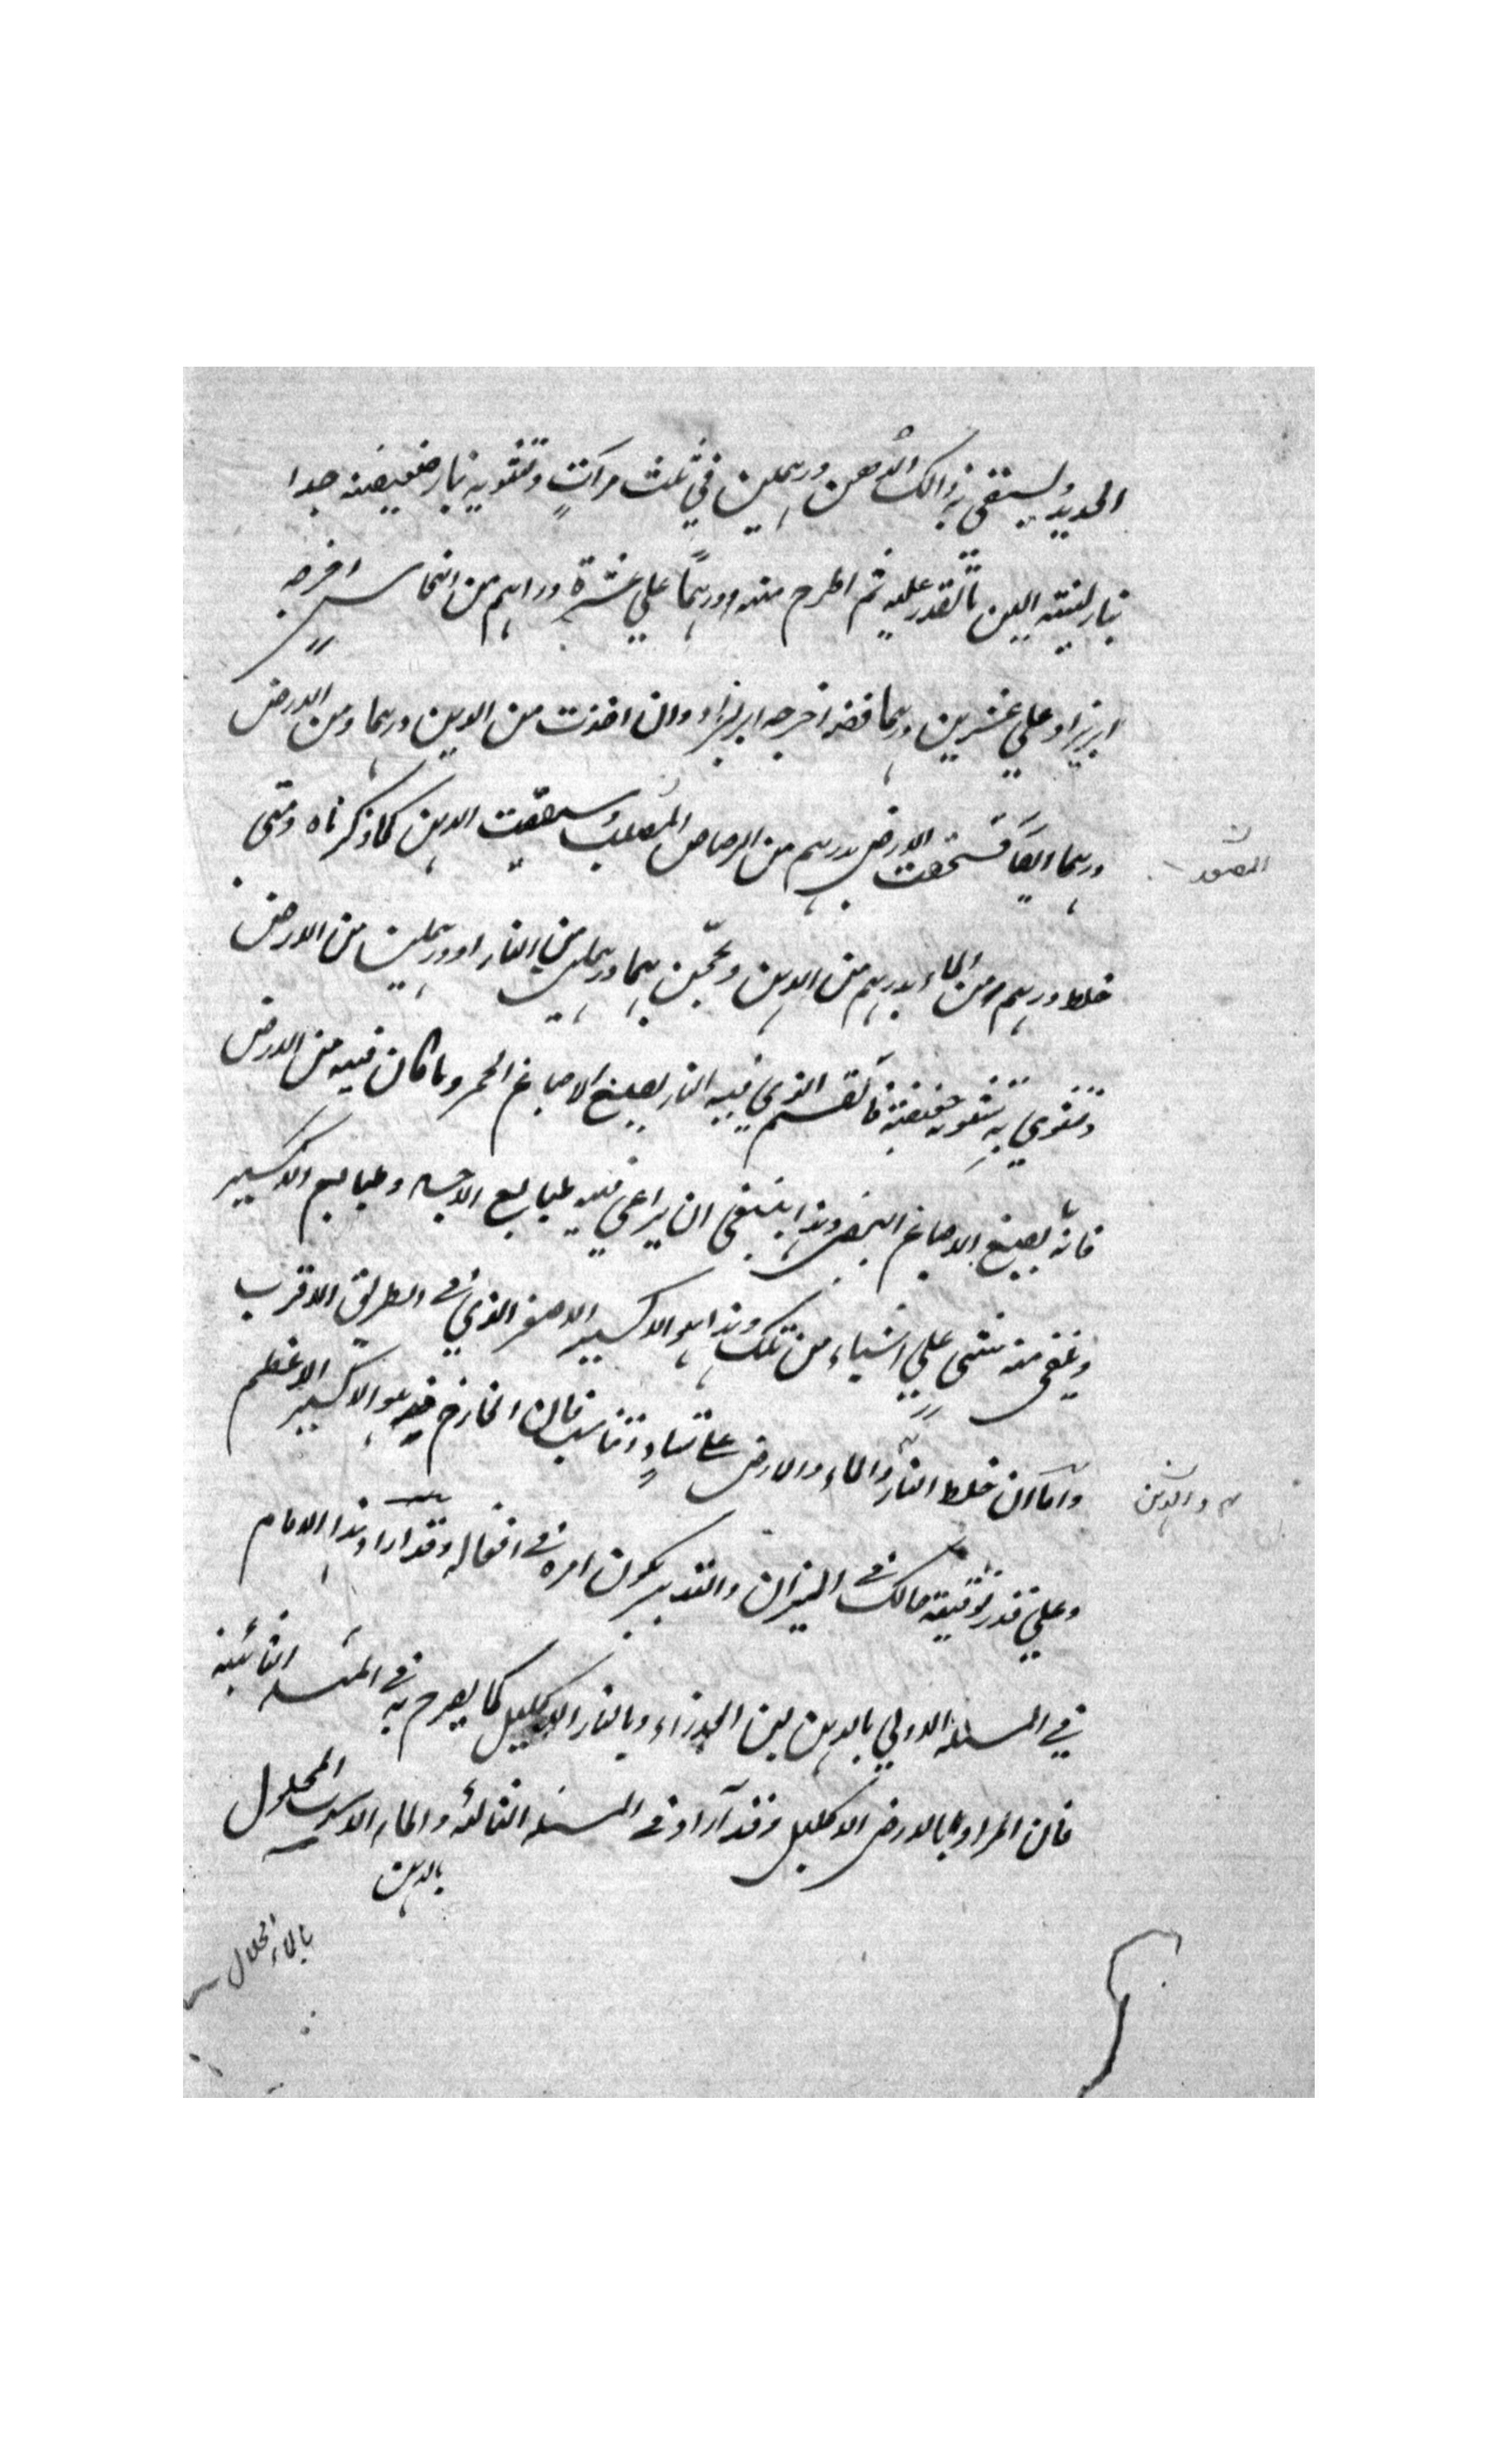 الحديد وليستقى بذالك الدهن درهمين في ثلث مراتٍ وتشويه بنار ضعيفة جدا
بنار لينته الين ما تقدر عليه ثم اطرح منه درهمًا علي عشرة دراهم من النحاس اخرجه
ابريزا وعلي عشرين درهما فضه اخرجه ابريزا وان اخذت من الدهن درهما ومن الارض
درهما ايضا فسحقت الارض بدرهم من الرصاص المصلب وسقيت الدهن كما ذكرناه ومتى
المصعد
خلط درهم من الماء بدرهم من الدهن وعجن بهما درهمين من النار او درهمين من الارض
وتشوي به تشويه خفيفة فالقسم الذي فيه النار يصبغ الاصباغ الحمر وما كان فيه من الارض
فانه يصبغ الاصباغ البيض وهذا ينبغى ان يراعي فيه طبايع الاجساد وطبايع الاكسير
ويلقى منه شئ علي اشياء من تلك وهذا هو الاكسير الاصغر الذي في الطريق الاقرب
واما ان خلط النار والماء والارض علي تساوٍ وتناسب فان الخارج هو الاكسير الاعظم
والدهن
وعلي قدر توفيقه حالك في الميزان والتدبير يكون امره في افعاله وقد اراد هذا الامام
في المسئله الاولي بالدهن لبن العذراء وبالنار الاكليل كما يصرح به في المسئله الثانية
فان المراد بالارض الاكليل وقد اراد في المسئله الثالثة والماء الالهى المحلول
بالدهن
بالماء الحلال